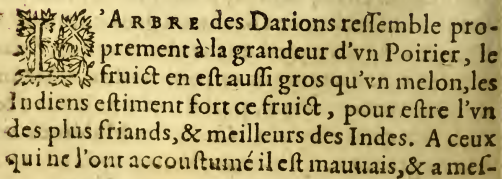 L'ARBRE des Darions reſſemble pro-
prement à la grandeur d'vn Poirier, le
fruict en eſt auſſi gros qu'vn melon, les
Indiens eſtiment fort ce fruict, pour eſtre l'vn
des plus friands, & meilleurs des Indes. A ceux
qui ne l'ont accouſtumé il eſt mauuais, & a meſ-